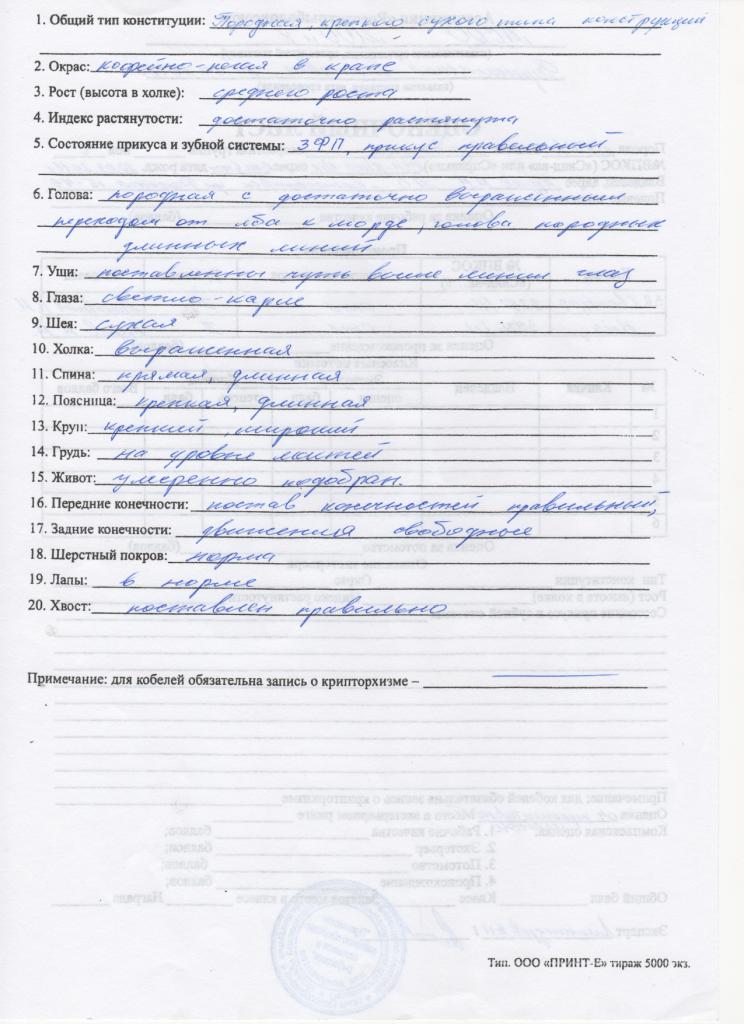 1. Общий тип конституции: Породная, крепкого сухого типа конструкции
2. Окрас: кофейно-пегая в крапе
3. Рост (высота в холке): среднего роста
4. Индекс растянутости: достаточно растянута
5. Состояние прикуса и зубной системы: ЗФП, прикус правильный
6. Голова: породная с достаточно выраженным
переходом от лба к морде, голова породных
длинных линий
7. Уши: поставленны чуть выше линии глаз
8. Глаза: светло-карие
9. Шея: сухая
10. Холка: выраженная
11. Спина: прямая, длинная
12. Поясница: крепкая, длинная
13. Круп: крепкий, широкий
14. Грудь: на уровне локтей
15. Живот: умеренно подобран.
16. Передние конечности: постав конечностей правильный,
17. Задние конечности: движения свободные
18. Шерстный покров: норма
19. Лапы: в норме
20. Хвост: поставлен правильно
Примечание: для кобелей обязательна запись о крипторхизме –
Тип. ООО «ПРИНТ-Е» тираж 5000 экз.